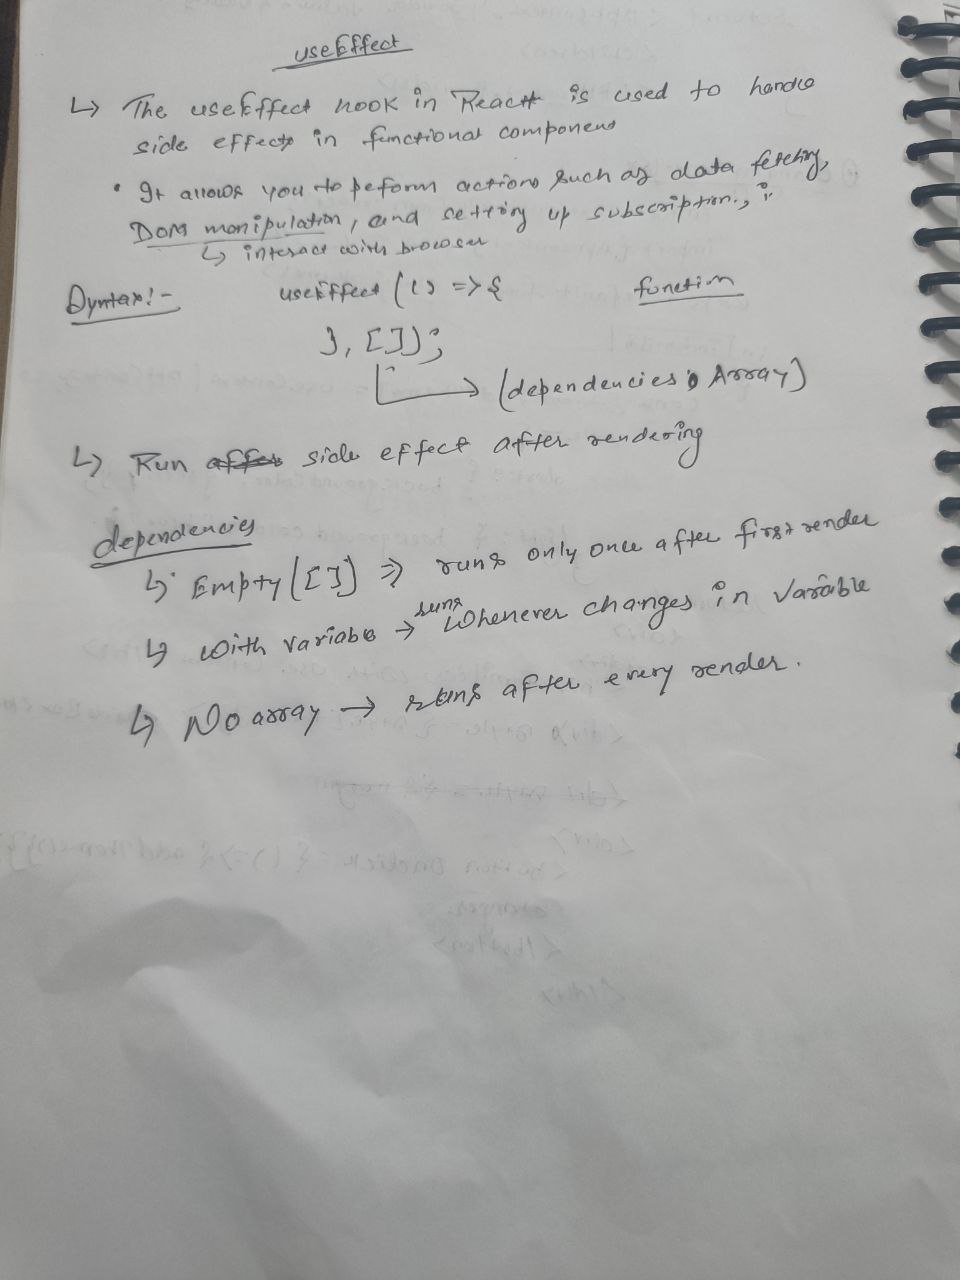 useEffect
↳ The useEffect hook in React is used to handle
side effects in functional component
• It allows you to peform actions such as data fetching,
DOM manipulation, and setting up subscription.,
↳ interact with browser
Syntax:- useEffect (() => { function
}, []);
(dependencies Array)
↳ Run side effect after rendering
dependencies
↳ Empty ([]) => runs only once after first render
↳ with variable → runs whenever changes in variable
↳ No array → runs after every render.